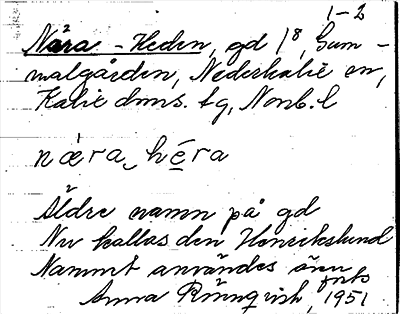 1-2
Nära-Heden, gd 1⁸, Gum-
malgården, Nederkalix sn,
Kalix dms. tg, Nonb. l
næra hera
Äldre namn på gd
Nu kallas den Henrikslund
Namnet användes än
Anna Rönnqvist, 1951